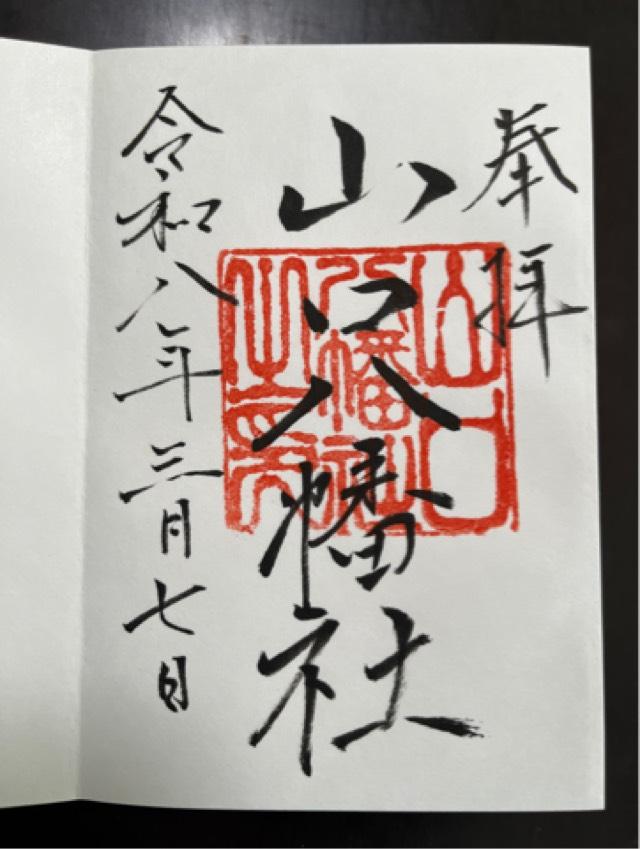 奉拝
山口八幡社
山口八幡社之印
令和八年三月七日